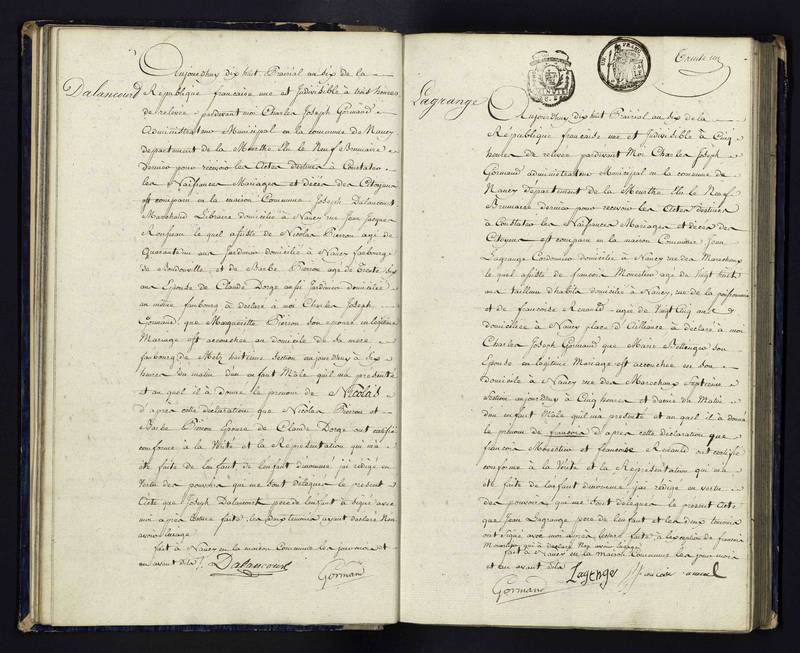 Dalancourt
Aujourdhuy dix huit Prairial an six de la
République francaise une et Indivisible à trois heures
de relevée pardevant moi Charles Joseph Gormand
Administrateur Municipal en la commune de Nancy
département de la Meurthe Elu le Neuf Brumaire
dernier pour recevoir les Actes destinés à Constater
les Naissances Mariages et décès des Citoyens
est comparu en la maison Commune Joseph Dalancourt
Marchand Libraire domicilié à Nancy rue Jean Jacques
Rousseau le quel assisté de Nicolas Pierron agé de
Quarante un ans Jardinier domicilié à Nancy faubourg
de Boudonville et de Barbe Pierron agé de trente six
ans Epouse de Claude Dorge aussi Jardinier domiciliée
au même faubourg à déclaré à moi Charles Joseph
Gormand que Margueritte Pierron son epouse en légitime
Mariage est accouchée au domicile de sa mere
faubourg de Metz huitieme section aujourdhuy à six
heures du matin d'un enfant Male qu'il m'a présenté
et au quel il à donné le prenom de Nicolas
d'après cette déclaration que Nicolas Pierron et
Barbe Pierron Epouse de Claude Dorge ont certifié
conforme à la Vérité et la Représentation qui m'a
été faite de l'enfant dénommé j'ai rédigé en
Vertu des pouvoirs qui me sont délégués le présent
Acte que Joseph Dalancourt pere de l'enfant à signé avec
moi après lecture faite, les deux témoins ayant declaré Non
avoir l'usage
fait à Nancy en la maison Commune les jour mois et
an avant dits
Dalancourt
Gormand
UN FRANC
Trente un
Lagrange
Aujourdhuy dix huit Prairial an six de la
République francaise une et Indivisible à Cinq
heures de relevée pardevant Moi Charles Joseph
Gormand administrateur Municipal en la commune de
Nancy Département de la Meurthe Elu le Neuf
Brumaire dernier pour recevoir les Actes destinés
à Constater les Naissances Mariages et décès des
Citoyens est comparu en la maison Commune Jean
Lagrange Cordonnier domicilié à Nancy rue des Marechaux
le quel assisté de francois Monestier agé de Vingt huit
ans tailleur d'habits domicilié à Nancy, rue de la poissonnerie
et de francoise Renauld agée de Vingt Cinq ans
domiciliée à Nancy place d'Alliance à déclaré à moi
Charles Joseph Gormand que Marie son
Epouse en légitime Mariage est accouchée en son
domicile à Nancy rue des Marechaux Septieme
Section aujourdhuy à Cinq heures et demie du Matin
d'un enfant Male qu'il m'a présenté et au quel il à donné
le prénom de francois d'après cette déclaration que
francois Monestier et francoise Renauld ont certifié
conforme à la Vérité et la Représentation qui m'a
été faite de l'enfant dénommé j'ai rédigé en vertu
des pouvoirs qui me sont délégués le présent Acte
que Jean Lagrange pere de l'enfant et les deux témoins
ont signé avec moi après lecture faite à l'exception de francois
Monestier qui à declaré Non avoir l'usage
fait à Nancy en la Maison Commune les jour mois
et an avant dits
Lagrange
Gormand